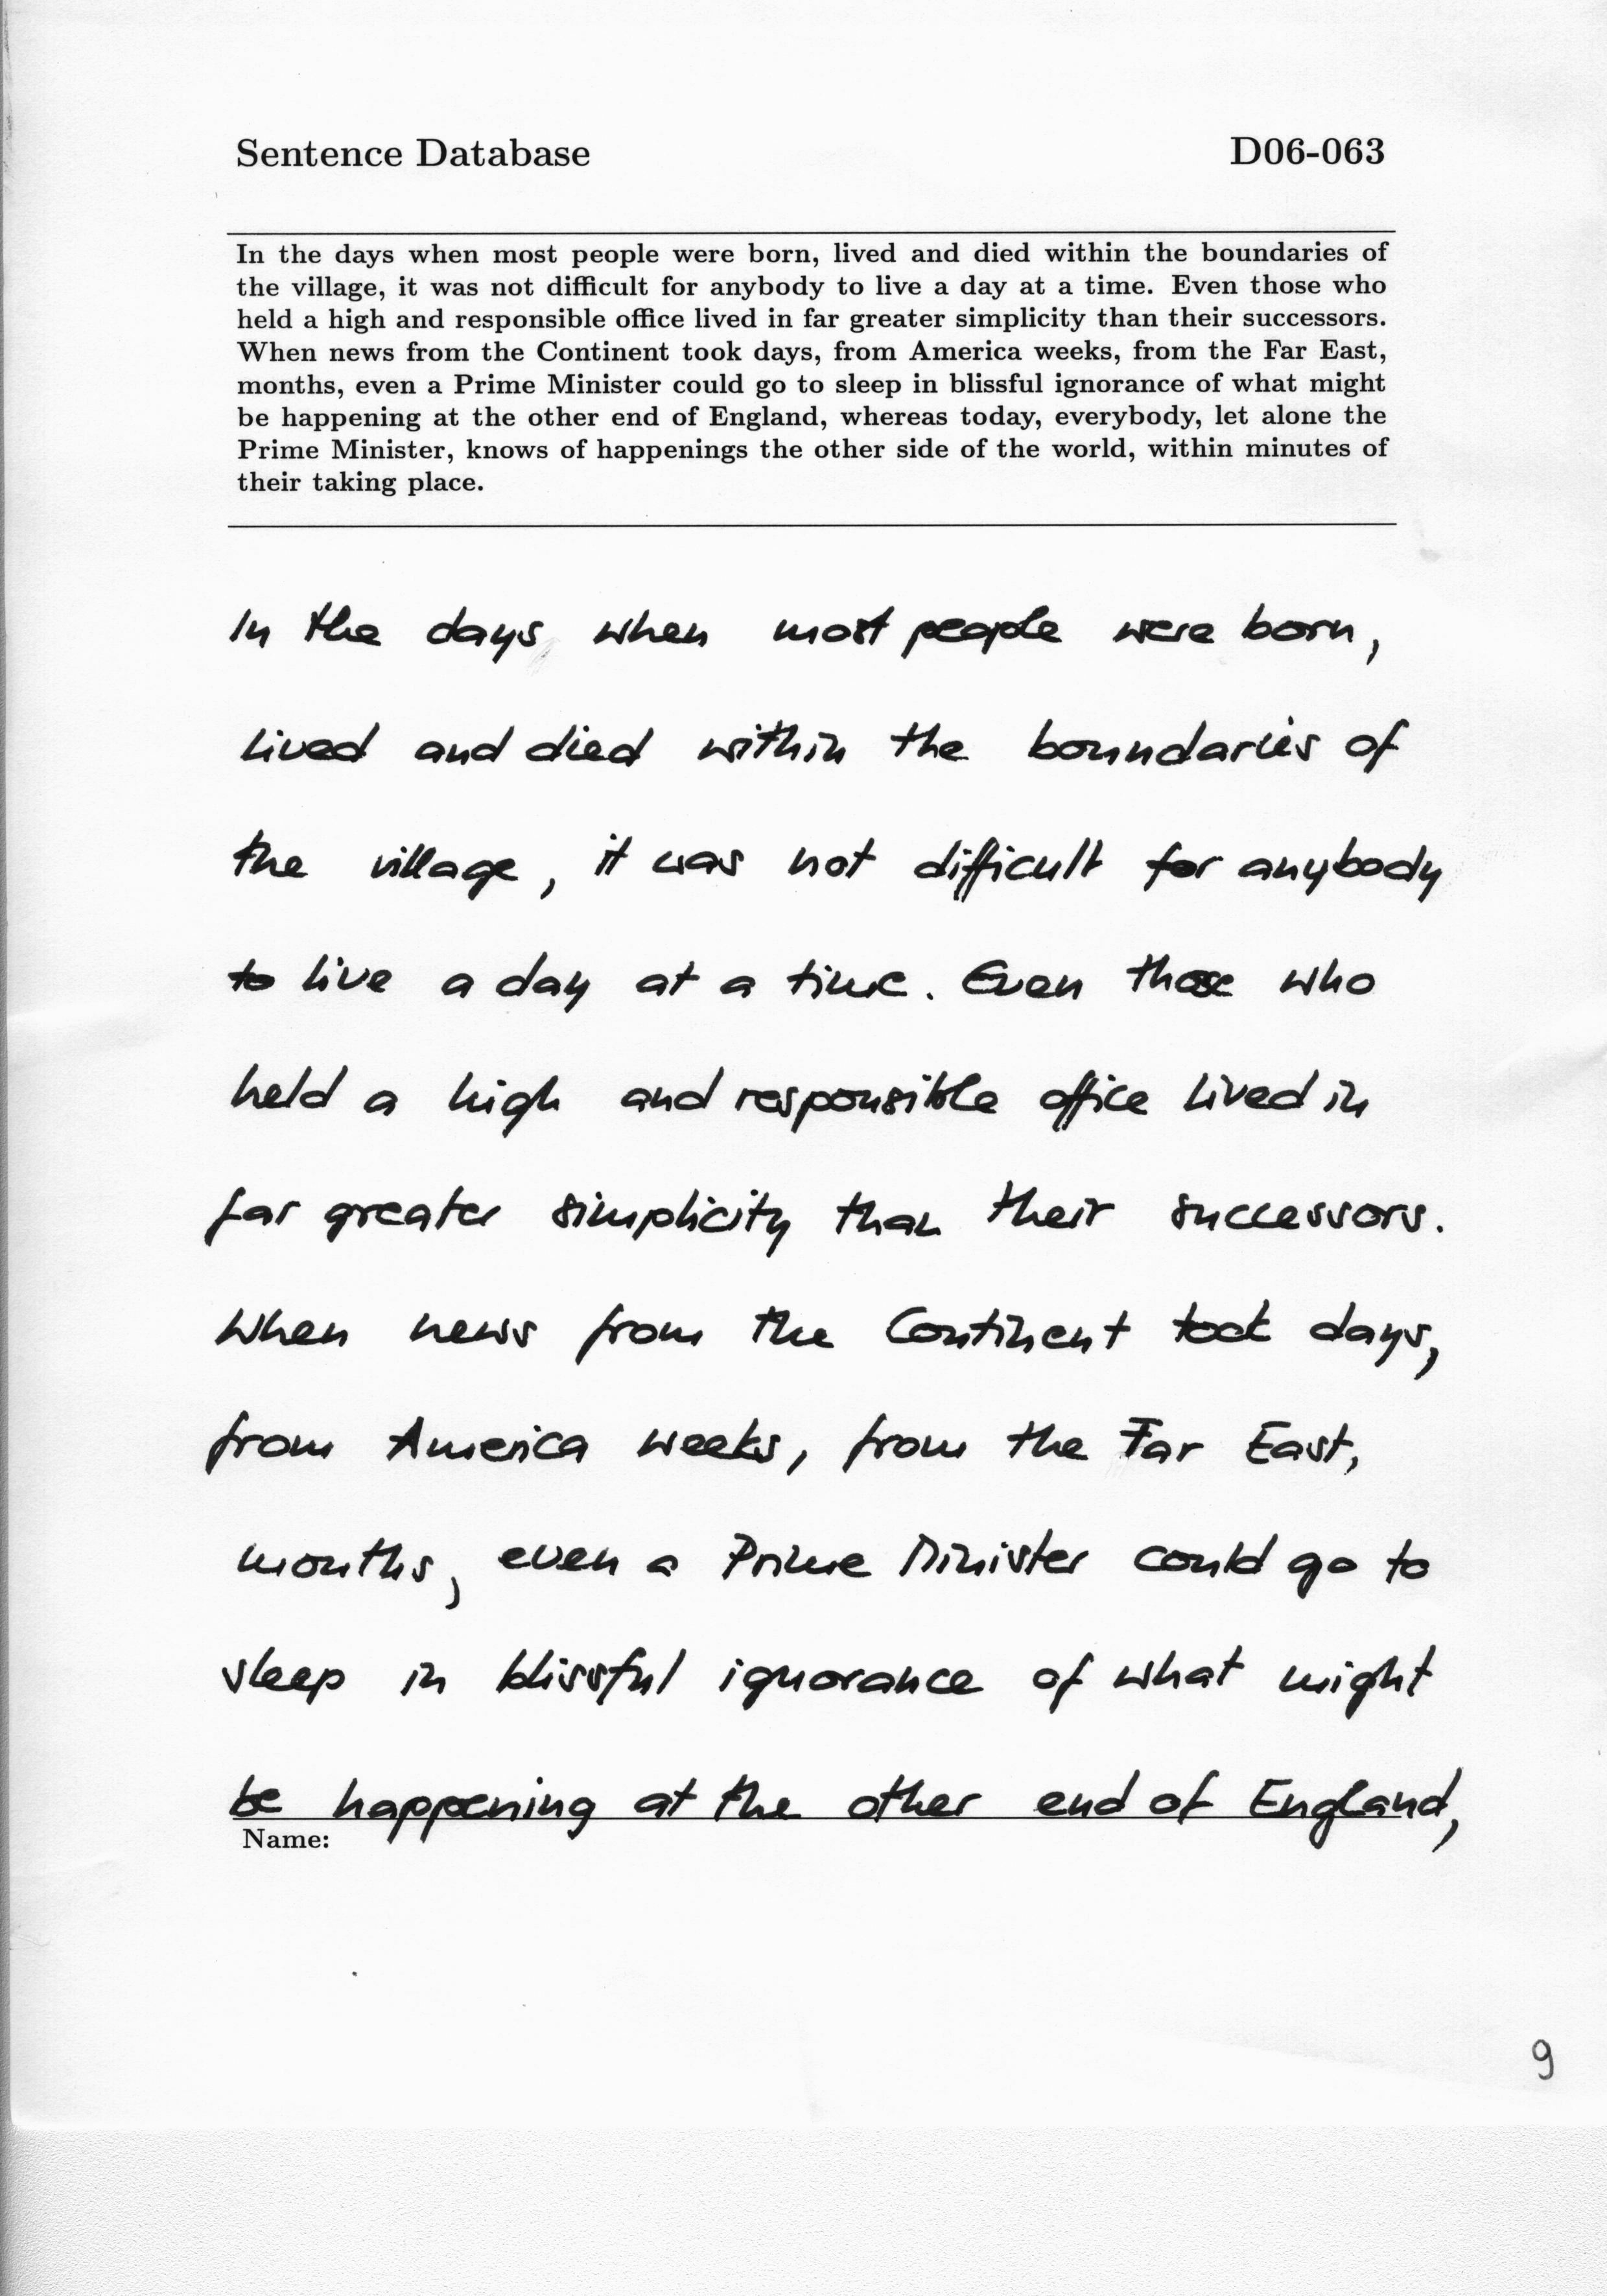 Sentence Database D06-063
In the days when most people were born, lived and died within the boundaries of
the village, it was not difficult for anybody to live a day at a time. Even those who
held a high and responsible office lived in far greater simplicity than their successors.
When news from the Continent took days, from America weeks, from the Far East,
months, even a Prime Minister could go to sleep in blissful ignorance of what might
be happening at the other end of England, whereas today, everybody, let alone the
Prime Minister, knows of happenings the other side of the world, within minutes of
their taking place.
In the days when most people were born,
lived and died within the boundaries of
the village, it was not difficult for anybody
to live a day at a time. Even those who
held a high and responsible office lived in
far greater simplicity than their successors.
When news from the Continent took days,
from America weeks, from the Far East,
months, even a Prime Minister could go to
sleep in blissful ignorance of what might
be happening at the other end of England,
Name:
9